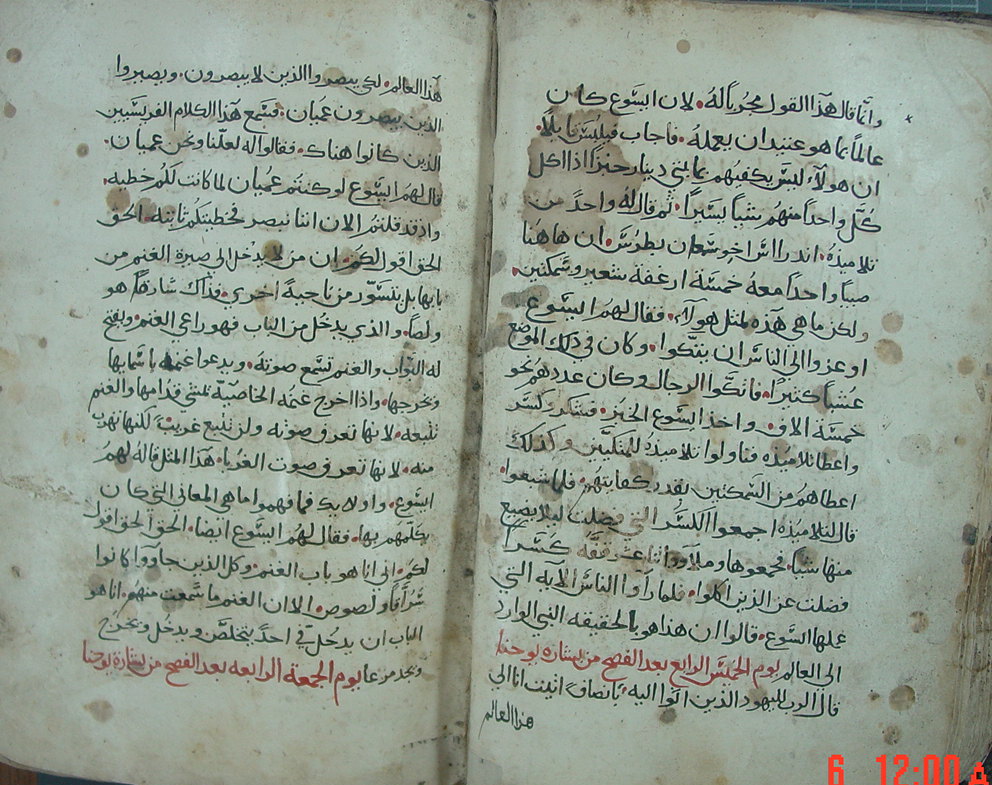 وانما قال هذا القول مجربا له. لان ايسوع كان
عالما بما هو عتيد ان يعمله. فاجاب فيلبس قايلا.
ان هولاء ليس يكفيهم بمايتي دينار خبزا اذا اكل
كل واحدا منهم شيا يسيرا. ثم قال له واحد من
تلاميذه. اندراس اخو سمعان بطرس. ان هاهنا
صبيا واحدا معه خمسة ارغفة شعير وسمكتين.
ولكن ما هي هذه لمثل هولاء. فقال لهم ايسوع
اوعزوا الى الناس ان يتكوا. وكان في ذلك الموضع
عشبا كثيرا. فاتكوا الرجال وكان عددهم نحو
خمسة الاف. واخذ ايسوع الخبز. فشكر وكسر
واعطا تلاميذه فناولوا تلاميذه للمتكيين وكذلك
اعطاهم من السمكتين بقدر كفايتهم. فلما شبعوا.
قال لتلاميذه اجمعوا الكسر التي فضلت ليلا يضيع
منها شيا. فجمعوها وملاوا اثنا عشر قفه كسرا
فضلت عن الذين اكلوا. فلما راوا الناس الايه التي
عملها ايسوع. قالوا ان هذا هو بالحقيقه النبي الوارد
الى العالم يوم الخميس الرابع بعد الفصح من بشارة يوحنا
قال الرب لليهود الذين اتوا اليه. بانصاف اتيت انا الى
هذا العالم
هذا العالم. لكي يبصروا الذين لا يبصرون. ويصيروا
الذين يبصرون عميان. فسمع هذا الكلام الفريسيين
الذين كانوا هناك. فقالوا له لعلنا ونحن عميان.
قال لهم ايسوع لو كنتم عميان لما كانت لكم خطيه.
واذ قد قلتم الان اننا نبصر فخطيتكم ثابته. الحق
الحق اقول لكم. ان من لا يدخل الى صيرة الغنم من
بابها بل يتسور من ناحية اخرى. فذاك سارقا هو
ولصا. والذي يدخل من الباب فهو راعي الغنم. ويفتح
له البواب والغنم تسمع صوته. ويدعوا غنمه باسمايها
ويخرجها. واذا اخرج غنمه الخاصية تمشي قدامها والغنم
تتبعه. لانها تعرف صوته ولن تتبع غريب لكنها تهرب
منه. لانها تعرف صوت الغربا. هذا المثل قاله لهم
ايسوع. واولايك فما فهموا ما هي المعاني التي كان
يكلمهم بها. فقال لهم ايسوع ايضا. الحق الحق اقول
لكم. اني انا هو باب الغنم. وكل الذين جاووا كانوا
سراقا ولصوص. الا ان الغنم ما سمعت منهم. انا هو
الباب ان يدخل في احد يتخلص ويدخل ويخرج
ويجد مرعا يوم الجمعة الرابعه بعد الفصح من بشارة يوحنا
6 12:00 A